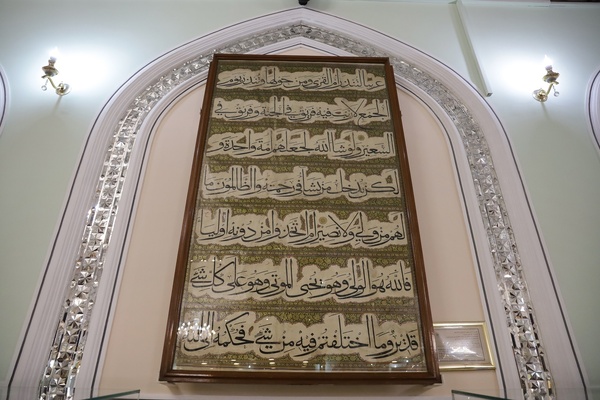 عربيا لتنذر ام القرى ومن حولها وتنذر يوم
الجمع لا ريب فيه فريق في الجنة وفريق في
السعير ولو شاء الله لجعلهم امة واحدة و
لكن يدخل من يشاء في رحمته والظالمون ما
لهم من ولي ولا نصير ام اتخذوا من دونه اوليا
فالله هو الولي وهو يحيي الموتى وهو على كل شيء
قدير وما اختلفتم فيه من شيء فحكمه الى الله